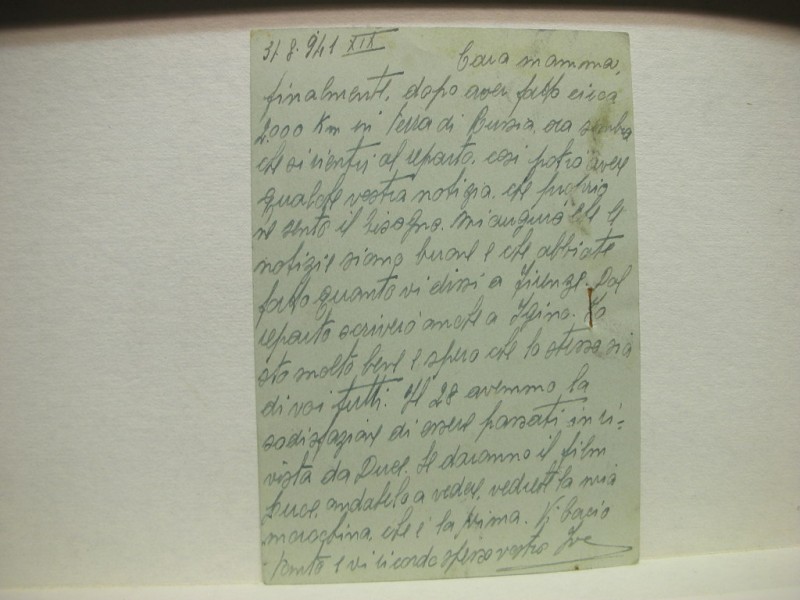 31 8. 941 XIX
Cara mamma,
finalmente, dopo aver fatto circa
2.000 Km in terra di Russia, ora sembra
che si rientri al reparto, così potrò avere
qualche vostra notizia, che proprio
ne sento il bisogno. Mi auguro che le
notizie siano buone e che abbiate
fatto quanto vi dissi a Firenze. Dal
reparto scriverò anche a Igina. Io
sto molto bene e spero che lo stesso sia
di voi tutti. Il 28 avemmo la
sodisfazione di essere passati in ri=
vista da Duce. Se daranno il film
Luce, andatelo a vedere, vedrete la mia
macchina, che è la prima. Vi bacio
tanto e vi ricordo spesso vostro